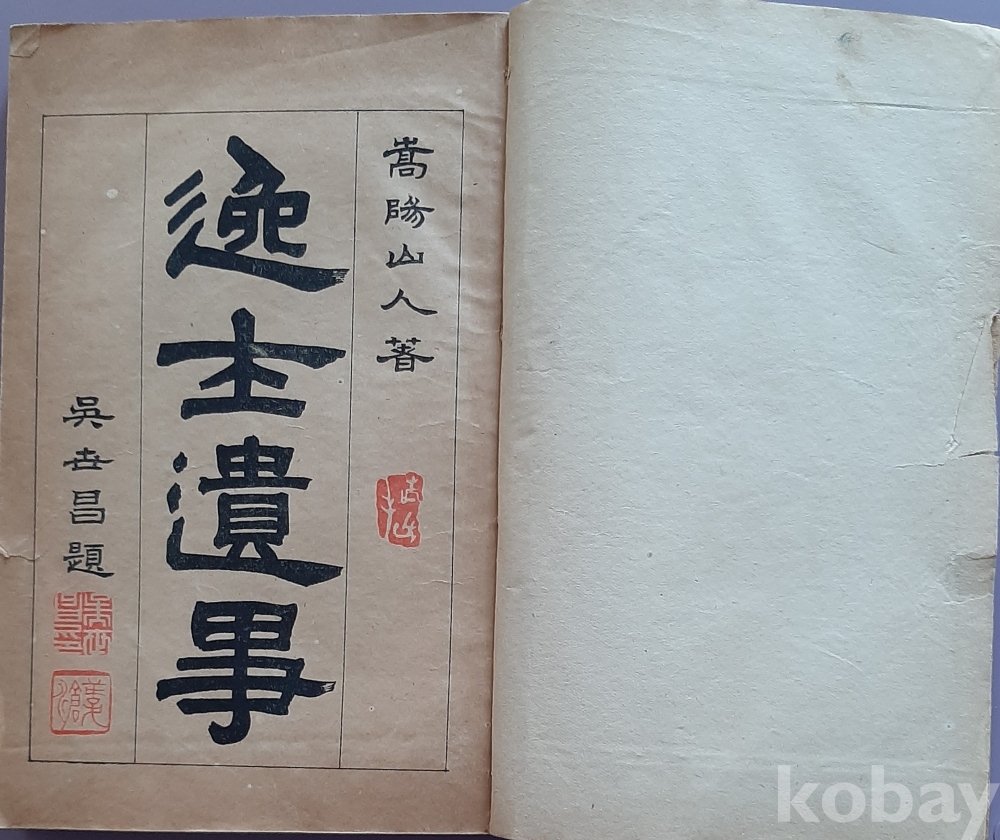 嵩陽山人著
逸士遺事
吳世昌題
kobay